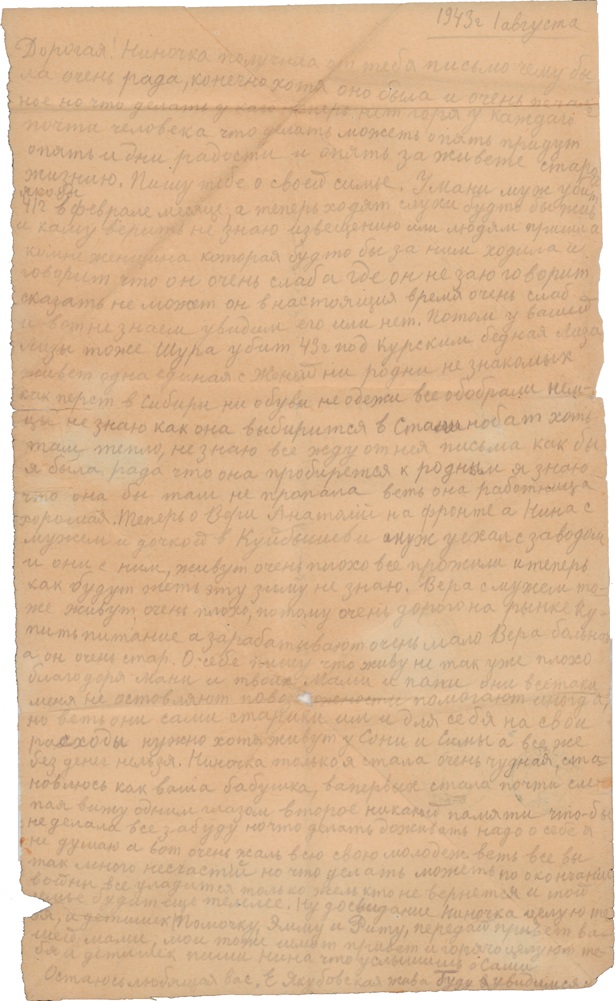 1943 г 1 августа
Дорогая! Ниночка получила от тебя письмо чему бы-
ла очень рада, конечно хотя оно была и очень печаль
ное но что делать у каго теперь нет горя у каждаго
почти человека что делать можеть опять придут
опять и дни радости и опять за живете старую
жизнию. Пишу тебе о своей симье. У Мани муж убит
41 г в феврале месяце а теперь ходят слухи будто бы жив
и каму верить не знаю извещению или людям пришла
комне женщина которая будто бы за ним ходила и
говорит что он очень слаба где он не заю говорит
сказать не может он в настоящия время очень слаб
и вот не знаем увидим его или нет. Потом у вашей
лизы тоже Шура убит 43 г под Курским бедная Лиза
живет одна единая с Женей ни родни не знакомых
как перст в Сибири ни обуви не одежи все обобрали нем-
цы не знаю как она выбирится в Сталинобат хоть
там тепло, не знаю все жду от нея письма как бы
я была рада что она проберется к родным я знаю
что она бы там не пропала веть она работница
хорошая. Теперь о Вери Анатолий на фронте а Нина с
мужем и дочкой в Куйбышеви муж уехал с заводом
и они с ним, живут очень плохо все прожили и теперь
как будут жить эту зиму не знаю. Вера с мужем то-
же живут очень плохо, потому очень дорого на рынке ку-
пить питание а зарабатывают очень мало Вера больная
а он очень стар. О себе пишу что живу не так уже плохо
благодоря Мани и твоих Мами и папи они всетаки
меня не оставляют помогают иногда,
но веть они сами старики им и для себя на свои
расходы нужно хотя живут у Сони и Симы а все же
без денег нельзя. Ниночка только я стала очень чудная, ста-
новлюсь как ваша бабушка, вапервых стала почти сле-
пая вижу одним глазом второе никакой памяти что-бы
не делала все забуду но что делать доживать надо о себе я
не думаю а вот очень жаль всю свою молодеж веть все вы
так много несчастий но что делать можеть по окончании
войны все уладится только жаль кто не вернется и той
будет еще тежелее. Ну досвидание Ниночка целую те-
бя, и детишек Томочку, Эмму и Риту, передай привет ва-
шей маме, мои тоже шлют привет и горячо целуют те-
бя и детишек пиши Нина что услышишь о Саши
Остаюсь любящая вас. Е Якубовская жива буду увидимся